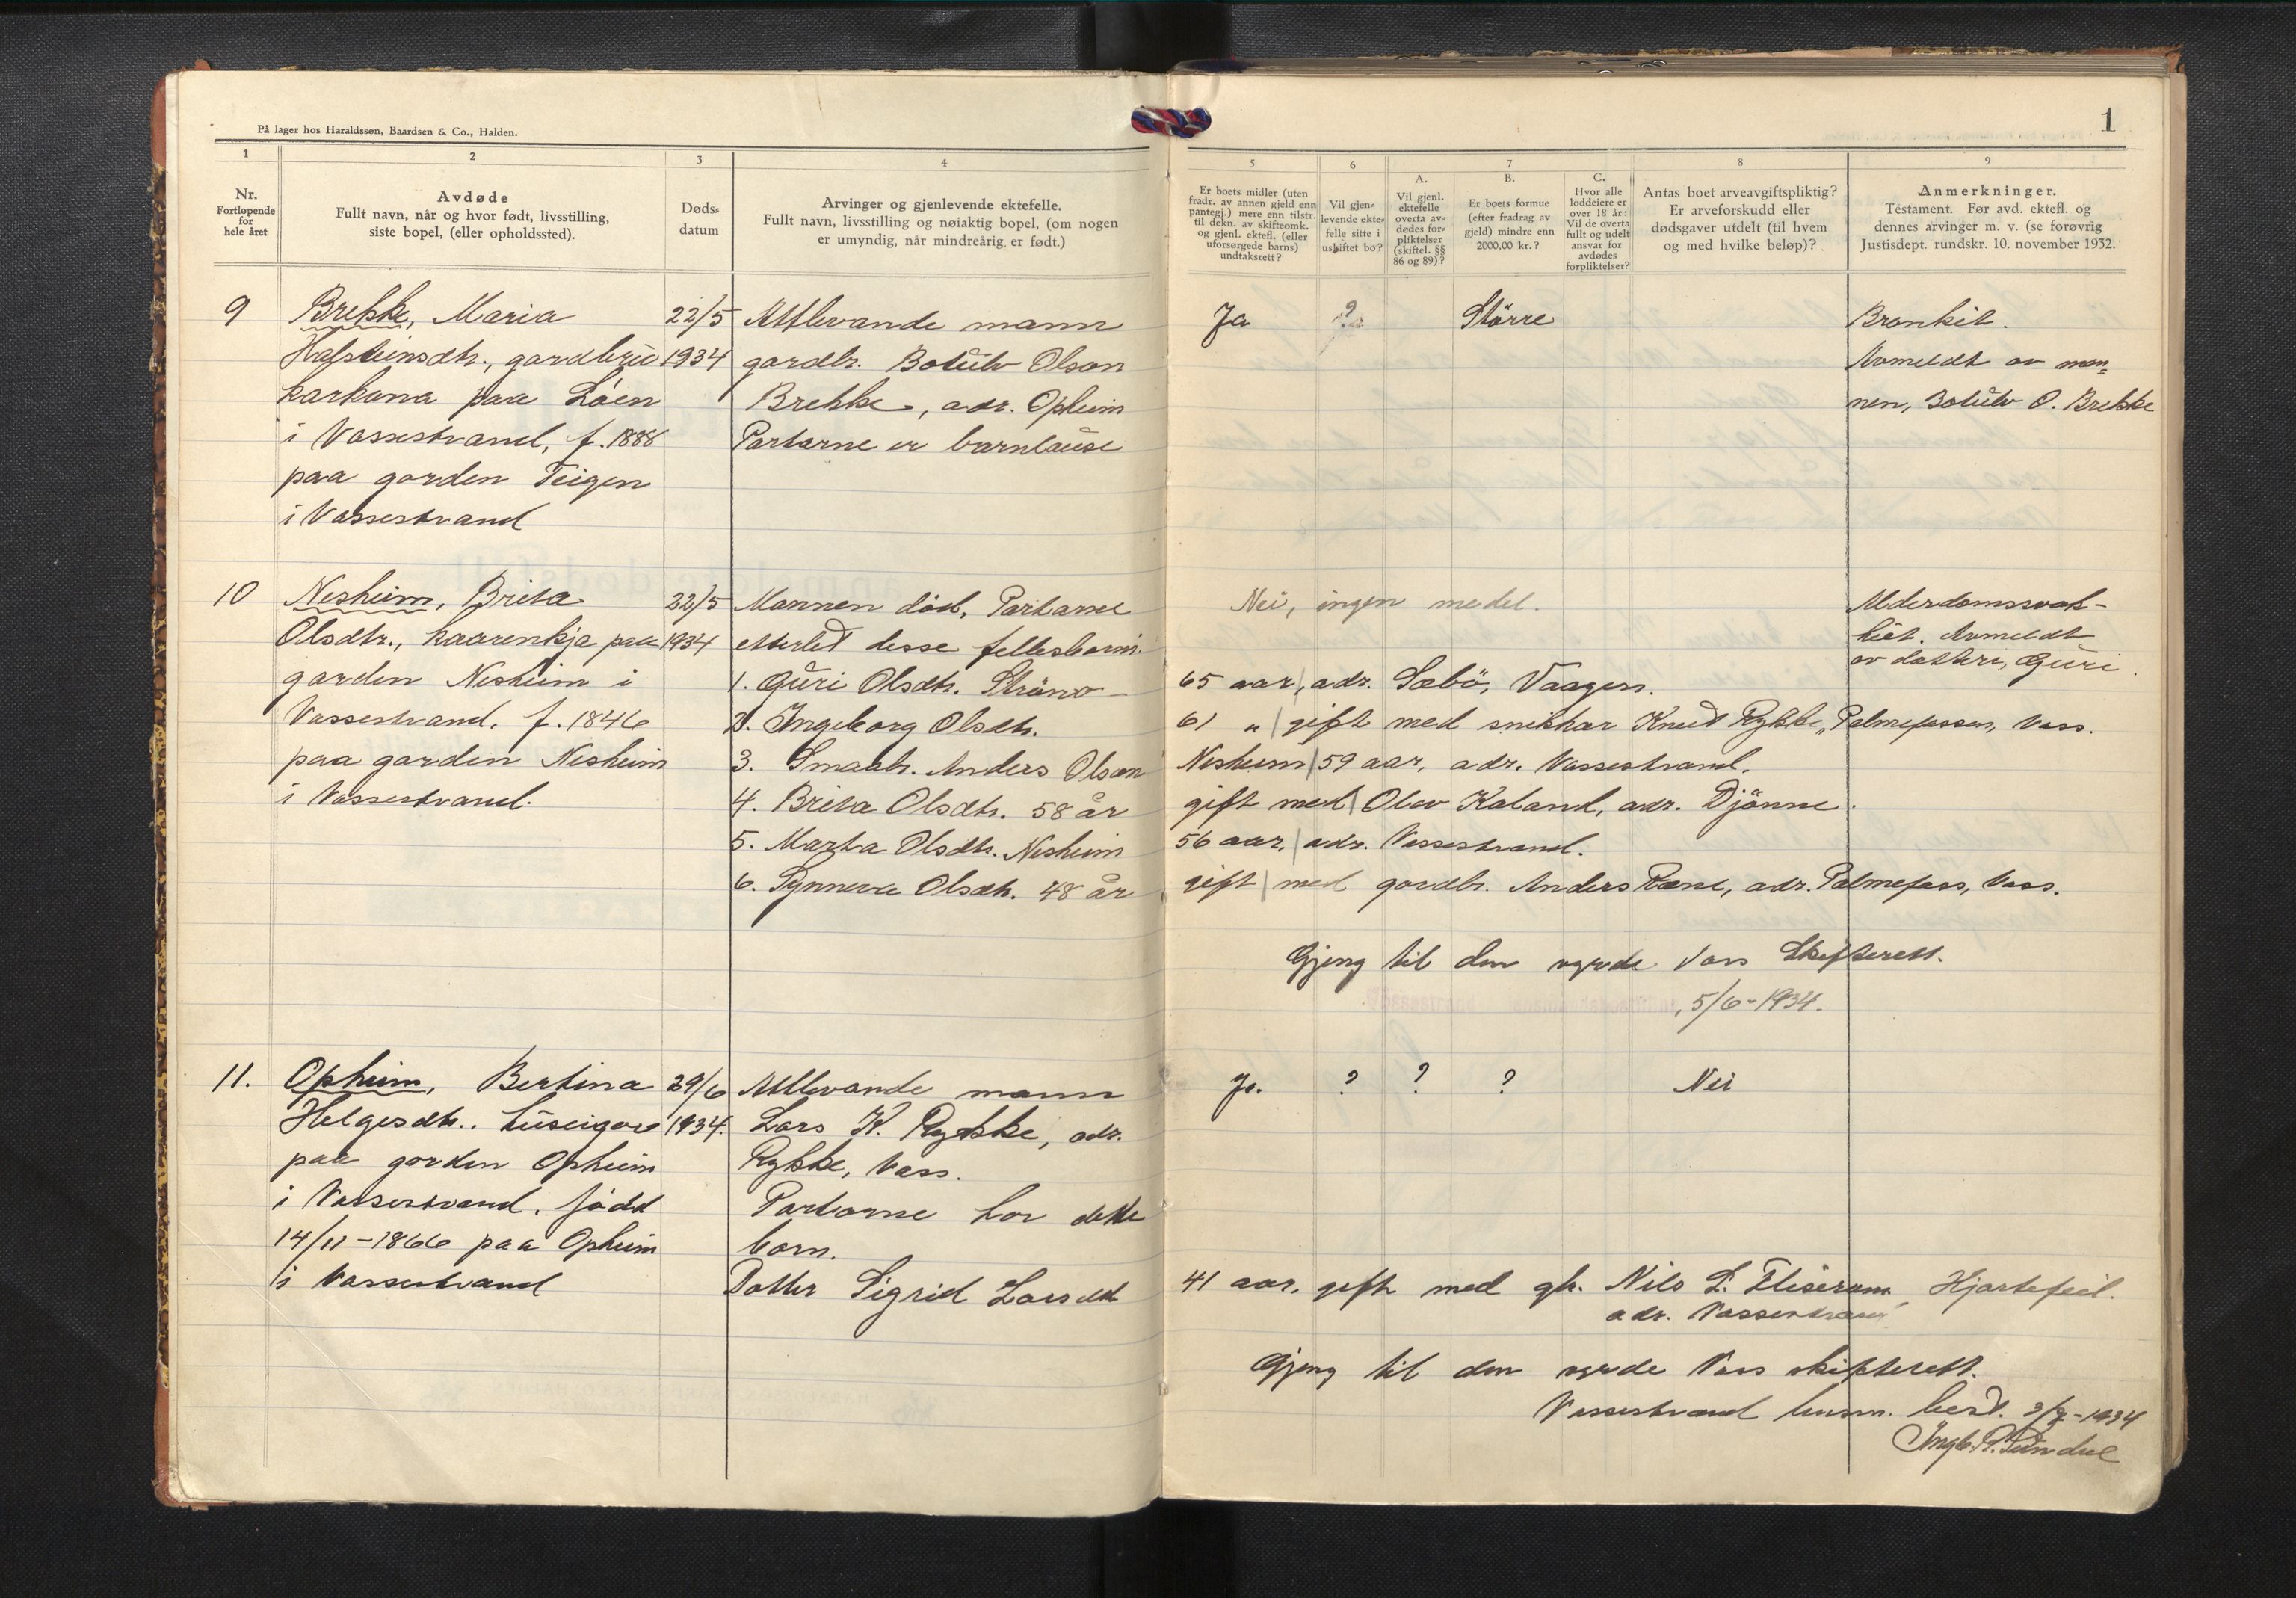 På lager hos Haraldssen, Baardsen & Co., Halden.
1
1
Nr.
Fortløpende
for
hele året
2
Avdøde
Fullt navn, når og hvor født, livsstilling,
siste bopel, (eller opholdssted).
3
Døds-
datum
4
Arvinger og gjenlevende ektefelle.
Fullt navn, livsstilling og nøiaktig bopel, (om nogen
er umyndig, når mindreårig er født.)
5
Er boets midler (uten
fradr. av annen gjeld enn
pantegj.) mere enn tilstr.
til dekn. av skifteomk.
og gjenl. ektefl. (eller
uforsørgede barns)
undtaksrett?
6
Vil gjen-
levende ekte-
felle sitte i
uskiftet bo?
7
A.
Vil gjenl.
ektefelle
overta av-
dødes for-
pliktelser
(skiftel. §§
86 og 89)?
B.
Er boets formue
(efter fradrag av
gjeld) mindre enn
2000,00 kr.?
C.
Hvor alle
loddeiere er
over 18 år:
Vil de overta
fullt og udelt
ansvar for
avdødes
forpliktelser?
8
Antas boet arveavgiftspliktig?
Er arveforskudd eller
dødsgaver utdelt (til hvem
og med hvilke beløp)?
9
Anmerkninger.
Testament. Før avd. ektefl. og
dennes arvinger m. v. (se forøvrig
Justisdept. rundskr. 10. november 1932.
9
Brekke, Maria
Halsteinsdtr., gardbru
karkona paa Löen
i Vossestrand, f. 1888
paa garden Teigen
i Vossestrand
22/5
1934
Attlevande mann
gardbr. Botülv Olson
Brekke, adr. Opheim
Partarne er barnlause
Ja
?
Större
Bronkit.
Avmeldt av man=
nen, Botülv O. Brekke
10
Nesheim, Brita
Olsdtr., kaarenkja paa
garden Nesheim i
Vossestrand. f. 1846
paa garden Nesheim
i Vossestrand.
22/5
1934
Mannen död. Partarne
etterlet desse fellesborni.
Nei, ingen medel.
Alderdomssvak-
heit. Avmeldt
av dotteri, Güri
1. Güri Olsdtr. 65 aar, adr. Sæbö, Vaagen.
2. Ingeborg Olsdtr. 61 " gift med snikkar Knut Rykke, Palmefossen, Voss.
3. Smaabr. Anders Olson Nesheim 59 aar, adr. Vossestrand.
4. Brita Olsdtr. 58 år gift med Olav Kaland, adr. Djönne.
5. Marta Olsdtr. Nesheim 56 aar, adr. Vossestrand.
6. Synneva Olsdtr. 48 år gift med gardbr. Anders adr. Palmefoss, Voss.
Gjeng til den vyrde Voss Skifterett.
Vossestrand lensmannsbestilling, 5/6-1934.
11.
Opheim, Bertina
Helgesdtr., huseigar
paa garden Opheim
i Vossestrand, född
14/11-1866 paa Opheim
i Vossestrand
29/6
1934.
Attlevande mann
Lars K. Rykke, adr.
Rykke, Voss.
Partarne har dette
born.
Ja.
?
?
?
Nei
Dotter Sigrid Larsdtr 41 aar, gift med gbr. Nils L. Hjartefeil.
adr. Vossestrand
Gjeng til den vyrde Voss skifterett.
Vossestrand lensm. best. 3/7-1934